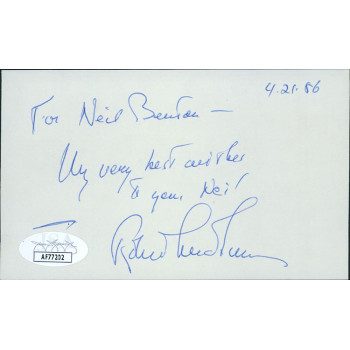 4.21.86
For Neil Benton —
My very best wishes
to you, Neil!
Robert Ludlum
AF77202